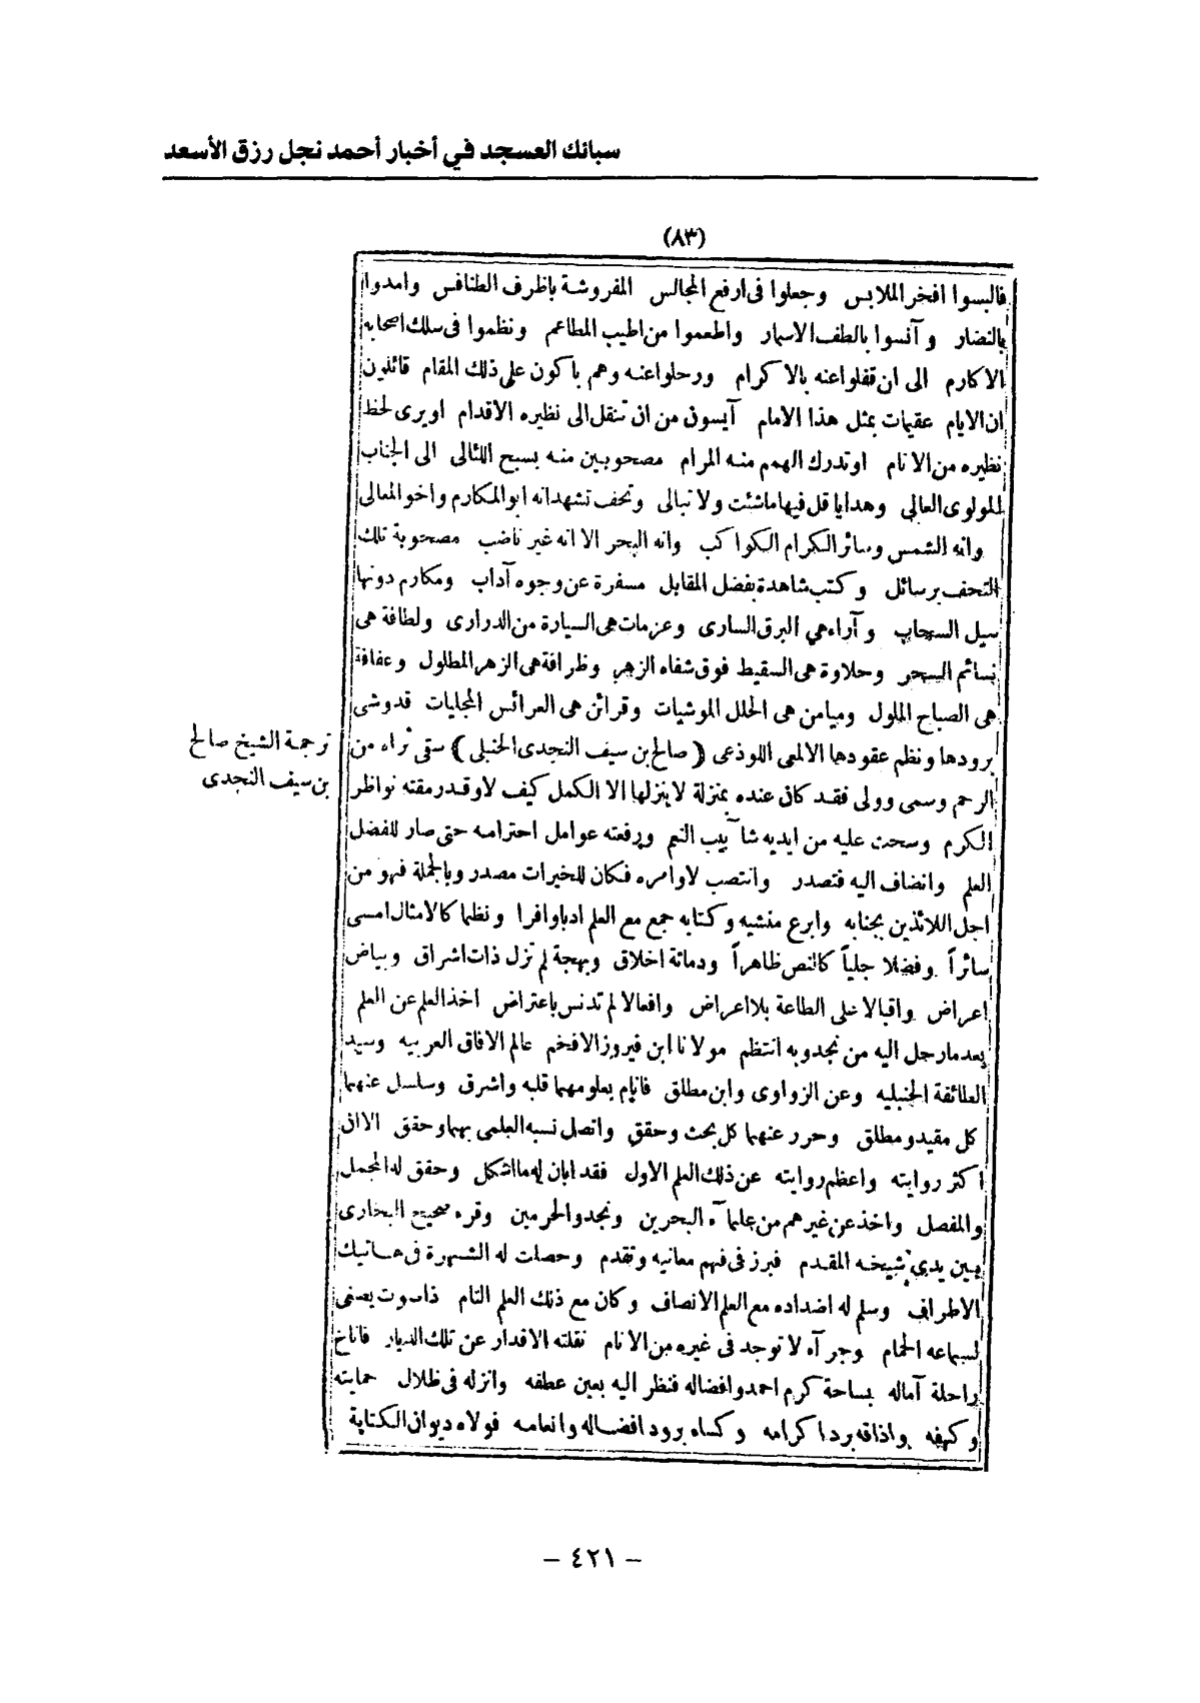 سبائك العسجد في أخبار أحمد نجل رزق الأسعد
(٨٣)
فالبسوا افخر الملابس وجعلوا فى ارفع المجالس المفروشة باظرف الطنافس وامدوا
بالنضار وآنسوا بالطف الاسمار واطعموا من اطيب المطاعم ونظموا فى سلك اصحابه
الاكارم الى ان قفلوا عنه بالاكرام ورحلوا عنه وهم باكون على ذلك المقام قائلون
ان الايام عقيمات بمثل هذا الامام آيسون من ان تنقل الى نظيره الاقدام او يرى لحظ
نظيره من الانام او تدرك الهمم منه المرام مصحوبين منه بسبح اللئالى الى الجناب
المولوى العالى وهدايا قل فيها ماشئت ولا تبالى وتحف تشهد انه ابو المكارم واخو المعالى
وانه الشمس وسائر الكرام الكواكب وانه البحر الا انه غير ناضب مصحوبة تلك
التحف برسائل وكتب شاهدة بفضل المقابل مسفرة عن وجوه آداب ومكارم دونها
سيل السحاب وآراء هى البرق السارى وعزمات هى السيارة من الدرارى ولطافة هى
نسائم السحر وحلاوة هى السقيط فوق شفاه الزهر وظرافة هى الزهر المطلول وعفافة
هى الصباح الملول وميامن هى الحلل الموشيات وقرائن هى العرائس المجليات قد وشى
برودها ونظم عقودها الالمعى اللوذعى (صالح بن سيف النجدى الحنبلى) سقى ثراه من
ترجمة الشيخ صالح
بن سيف النجدى
الرحم وسمى وولى فقد كان عنده بمنزلة لا ينزلها الا الكمل كيف لا وقد رمقته نواظر
الكرم وسحت عليه من ايديه شآبيب النعم ورفعته عوامل احترامه حتى صار للفضل
العلم وانضاف اليه فتصدر وانتصب لاوامره فكان للخيرات مصدر وبالجملة فهو من
اجل اللائذين بجنابه وابرع منشيه وكتابه جمع مع العلم ادبا وافرا ونظما كالامثال امسى
سائراً وفضلا جلياً كالنص ظاهراً ودماثة اخلاق وبهجة لم تزل ذات اشراق وبياض
اعراض واقبالا على الطاعة بلا اعراض وافعالا لم تدنس باعتراض اخذ العلم عن العلم
بعد مارحل اليه من نجد وبه انتظم مولانا ابن فيروز الافخم عالم الافاق العربيه وسيد
الطائفة الحنبليه وعن الزواوى وابن مطلق فانام بعلومهما قلبه واشرق وسلسل عنهما
كل مقيد ومطلق وحرر عنهما كل بحث وحقق واتصل نسبه العلمى بهما وحقق الا ان
اكثر روايته واعظم روايته عن ذلك العلم الاول فقد ابان له ما اشكل وحقق له المجمل
والمفصل واخذ عن غيرهم من علمآء البحرين ونجد والحرمين وقره صحيح البخارى
بين يدى شيخه المقدم فبرز فى فهم معانيه وتقدم وحصلت له الشهرة فى هاتيك
الاطراف وسلم له اضداده مع العلم الانصاف وكان مع ذلك العلم التام ذا صوت يصغى
لسماعه الحمام وجرآه لا توجد فى غيره من الانام نقلته الاقدار عن تلك الديار فاناخ
راحلة آماله بساحة كرم احمد وافضاله فنظر اليه بعين عطفه وانزله فى ظلال حمايته
وكهفه واذاقه برد اكرامه وكساه برود افضاله وانعامه فولاه ديوان الكتابة
– ٤٢١ –